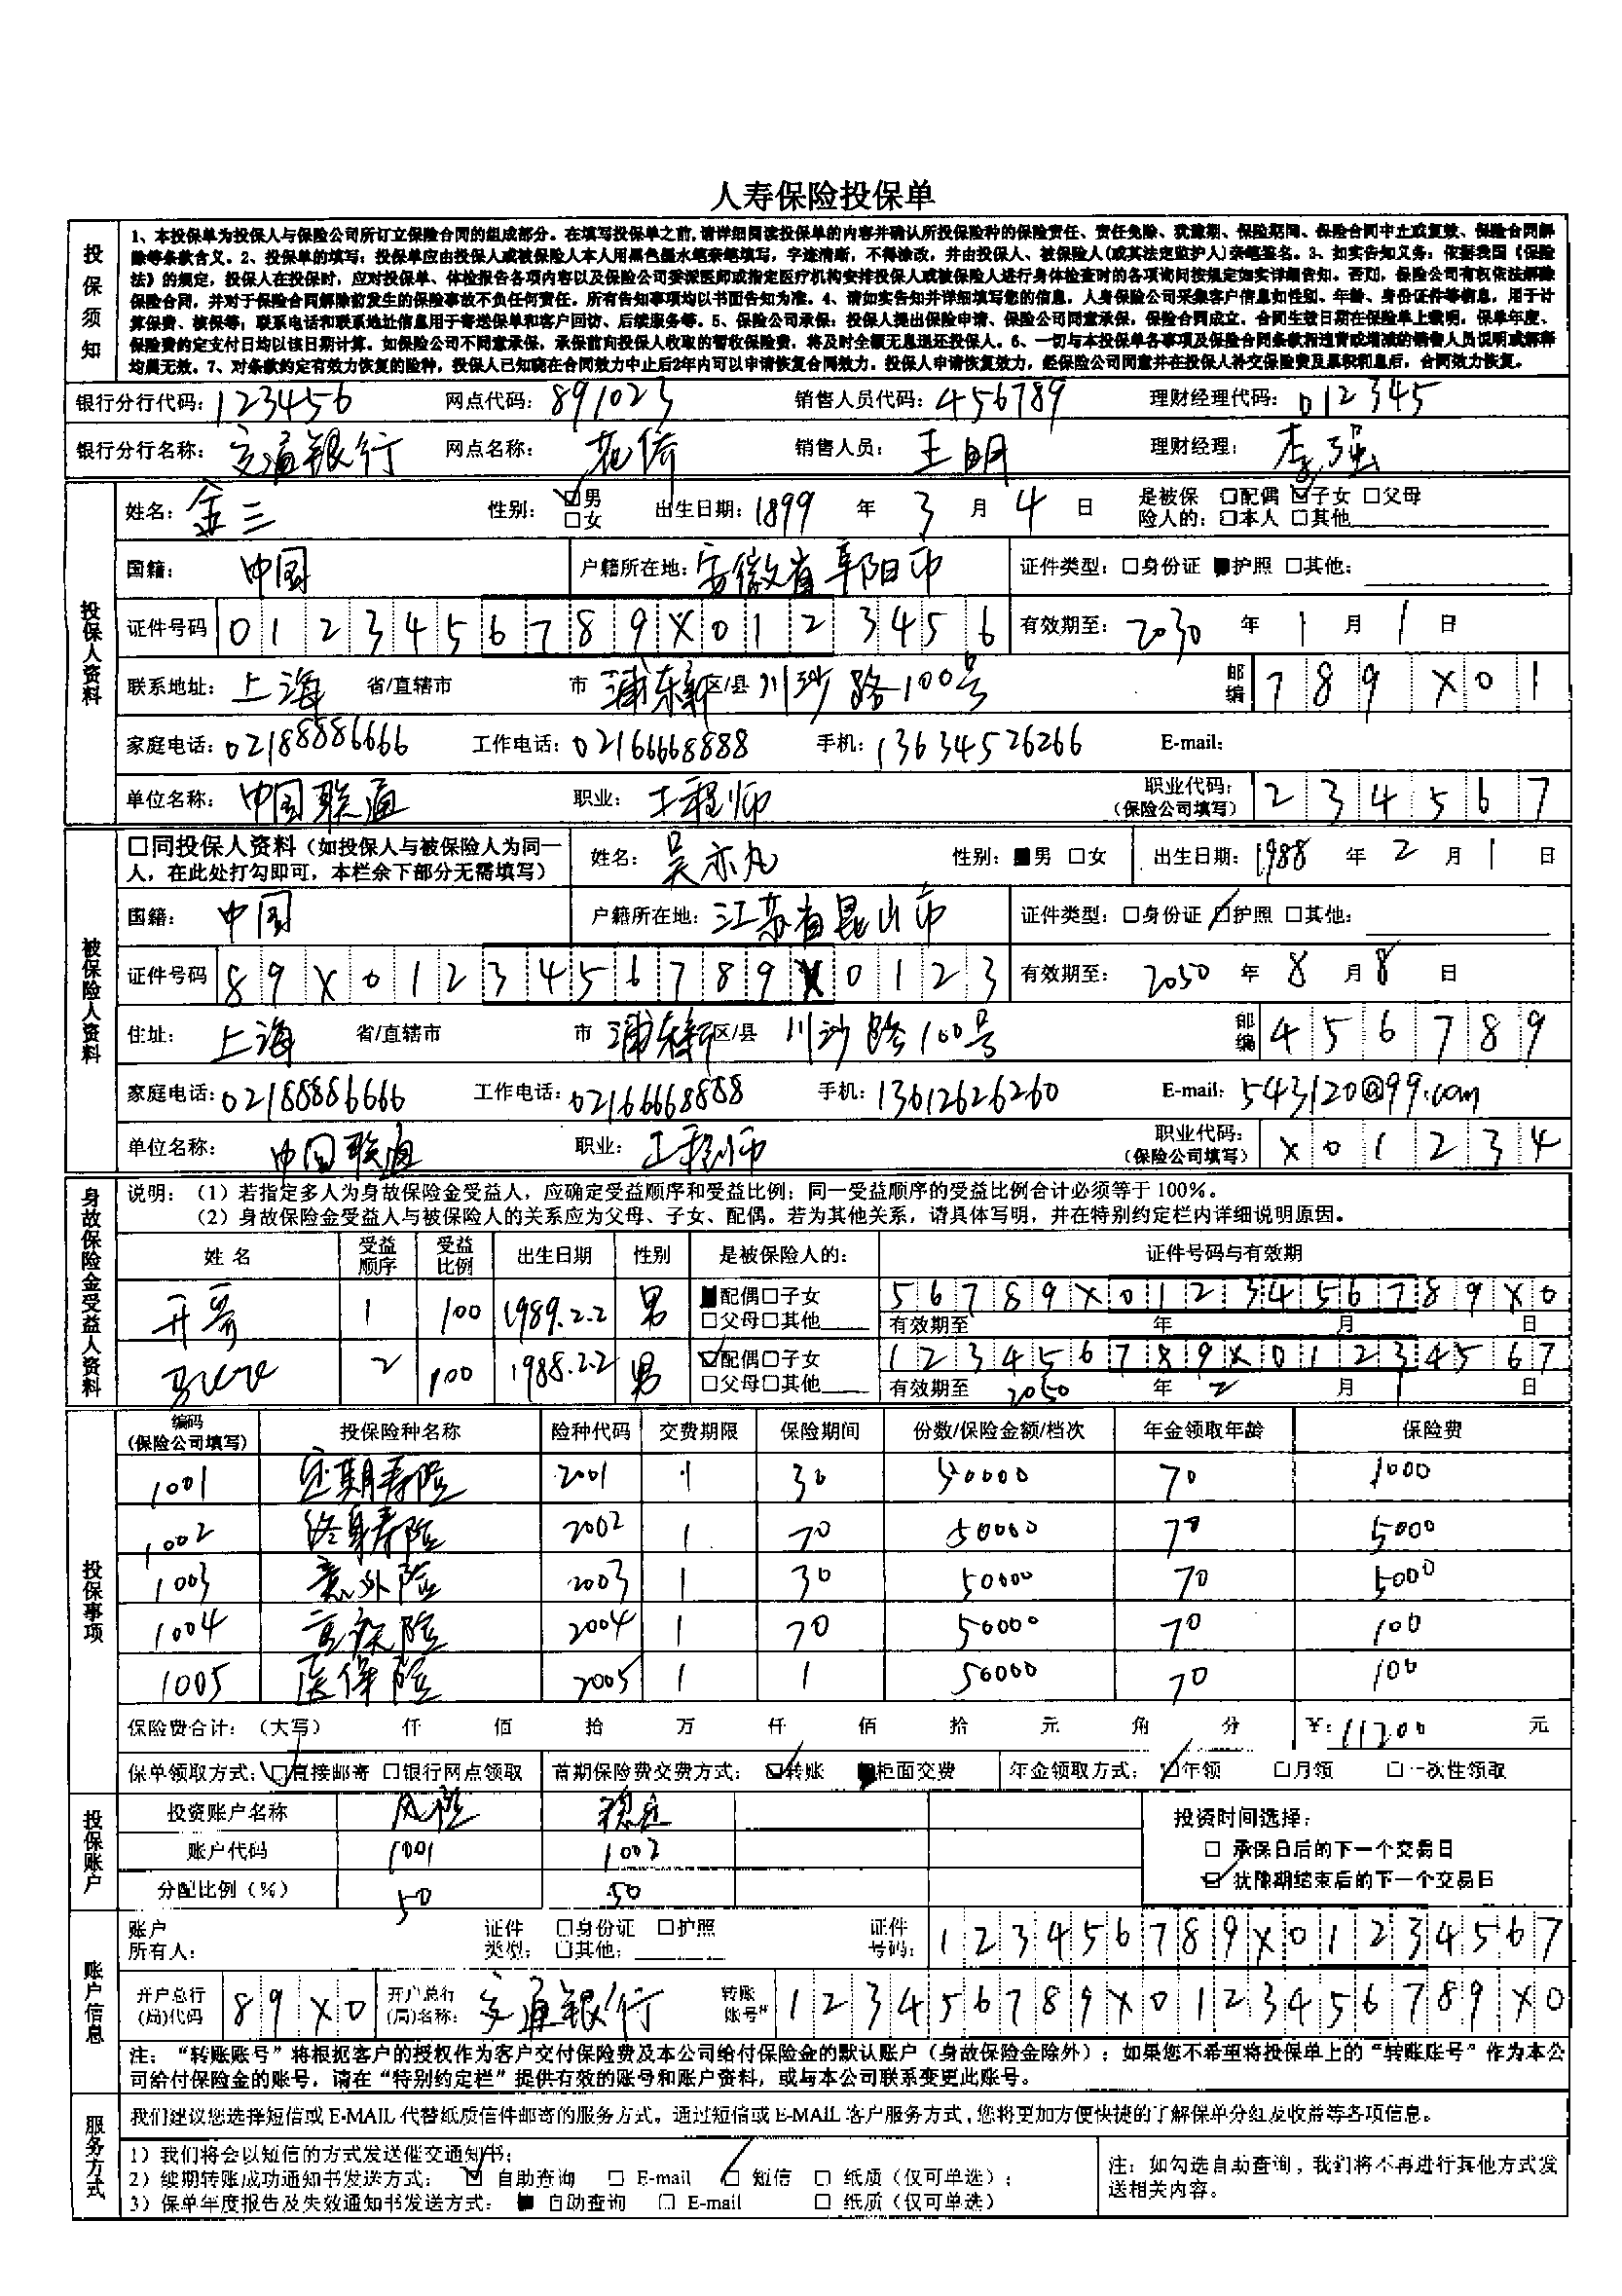 人寿保险投保单
投保须知
1、本投保单为投保人与保险公司所订立保险合同的组成部分。在填写投保单之前,请详细阅读投保单的内容并确认所投保险种的保险责任、责任免除、犹豫期、保险期间、保险合同中止或复效、保险合同解
除等条款含义。2、投保单的填写：投保单应由投保人或被保险人本人用黑色墨水笔亲笔填写，字迹清晰，不得涂改，并由投保人、被保险人(或其法定监护人)亲笔签名。3、如实告知义务：依据我国《保险
法》的规定，投保人在投保时，应对投保单、体检报告各项内容以及保险公司委派医师或指定医疗机构安排投保人或被保险人进行身体检查时的各项询问按规定如实详细告知。否则，保险公司有权依法解除
保险合同，并对于保险合同解除前发生的保险事故不负任何责任。所有告知事项均以书面告知为准。4、请如实告知并详细填写您的信息，人身保险公司采集客户信息如性别、年龄、身份证件等信息，用于计
算保费、核保等；联系电话和联系地址信息用于寄送保单和客户回访、后续服务等。5、保险公司承保：投保人提出保险申请、保险公司同意承保，保险合同成立。合同生效日期在保险单上载明，保单年度、
保险费约定支付日均以该日期计算。如保险公司不同意承保，承保前向投保人收取的暂收保险费，将及时全额无息退还投保人。6、一切与本投保单各事项及保险合同条款相违背或增减的销售人员说明或解释
均属无效。7、对条款约定有效力恢复的险种，投保人已知晓在合同效力中止后2年内可以申请恢复合同效力。投保人申请恢复效力，经保险公司同意并在投保人补交保险费及累积利息后，合同效力恢复。
银行分行代码：123456 网点代码：891023 销售人员代码：456789 理财经理代码：012345
银行分行名称：交通银行 网点名称：花侨 销售人员：王明 理财经理：李强
投保人资料
姓名：金三 性别：□男 □女 出生日期：1899 年 3 月 4 日 是被保险人的：□配偶 □子女 □父母 □本人 □其他
国籍：中国 户籍所在地：安徽省阜阳市 证件类型：□身份证 ■护照 □其他：
证件号码 0123456789X0123456 有效期至：2030 年 1 月 1 日
联系地址：上海 省/直辖市 市 浦东新 区/县 川沙路100号 邮编 789X01
家庭电话：02188886666 工作电话：02166668888 手机：13634526266 E-mail：
单位名称：中国联通 职业：工程师 职业代码：（保险公司填写） 234567
被保险人资料
□同投保人资料（如投保人与被保险人为同一人，在此处打勾即可，本栏余下部分无需填写） 姓名：吴亦凡 性别：■男 □女 出生日期：1988 年 2 月 1 日
国籍：中国 户籍所在地：江苏省昆山市 证件类型：□身份证 □护照 □其他：
证件号码 89X0123456789X0123 有效期至：2050 年 8 月 8 日
住址：上海 省/直辖市 市 浦东新 区/县 川沙路100号 邮编 456789
家庭电话：02188886666 工作电话：02166668888 手机：13612626260 E-mail：543120@99.com
单位名称：中国联通 职业：工程师 职业代码：（保险公司填写） X01234
身故保险金受益人资料
说明：（1）若指定多人为身故保险金受益人，应确定受益顺序和受益比例；同一受益顺序的受益比例合计必须等于100%。
（2）身故保险金受益人与被保险人的关系应为父母、子女、配偶。若为其他关系，请具体写明，并在特别约定栏内详细说明原因。
姓名 受益顺序 受益比例 出生日期 性别 是被保险人的： 证件号码与有效期
1 100 1989.2.2 男 ■配偶□子女 □父母□其他 56789X0123456789X0
有效期至 年 月 日
2 100 1988.2.2 男 □配偶□子女 □父母□其他 123456789X01234567
有效期至 2050 年 2 月 1 日
投保事项
编码（保险公司填写） 投保险种名称 险种代码 交费期限 保险期间 份数/保险金额/档次 年金领取年龄 保险费
1001 定期寿险 2001 1 30 50000 70 1000
1002 终身寿险 2002 1 70 50000 70 5000
1003 意外险 2003 1 30 50000 70 5000
1004 险 2004 1 70 50000 70 100
1005 医保险 2005 1 1 50000 70 100
保险费合计：（大写） 仟 佰 拾 万 仟 佰 拾 元 角 分 ￥：11200 元
保单领取方式：□直接邮寄 □银行网点领取 首期保险费交费方式：□转账 ■柜面交费 年金领取方式：□年领 □月领 □一次性领取
投保账户
投资账户名称 风险 稳定 投资时间选择：
账户代码 1001 1002 □ 承保日后的下一个交易日
分配比例（%） 50 50 □ 犹豫期结束后的下一个交易日
账户信息
账户所有人： 证件类型：□身份证 □护照 □其他： 证件号码：123456789X01234567
开户总行(局)代码 89X0 开户总行(局)名称：交通银行 转账账号 123456789X0123456789X0
注：“转账账号”将根据客户的授权作为客户交付保险费及本公司给付保险金的默认账户（身故保险金除外）；如果您不希望将投保单上的“转账账号”作为本公
司给付保险金的账号，请在“特别约定栏”提供有效的账号和账户资料，或与本公司联系变更此账号。
服务方式
我们建议您选择短信或E-MAIL代替纸质信件邮寄的服务方式。通过短信或E-MAIL客户服务方式，您将更加方便快捷的了解保单分红及收益等各项信息。
1）我们将会以短信的方式发送催交通知书；
2）续期转账成功通知书发送方式： □ 自助查询 □ E-mail □ 短信 □ 纸质（仅可单选）；
3）保单年度报告及失效通知书发送方式： ■ 自助查询 □ E-mail □ 纸质（仅可单选）
注：如勾选自助查询，我们将不再进行其他方式发
送相关内容。